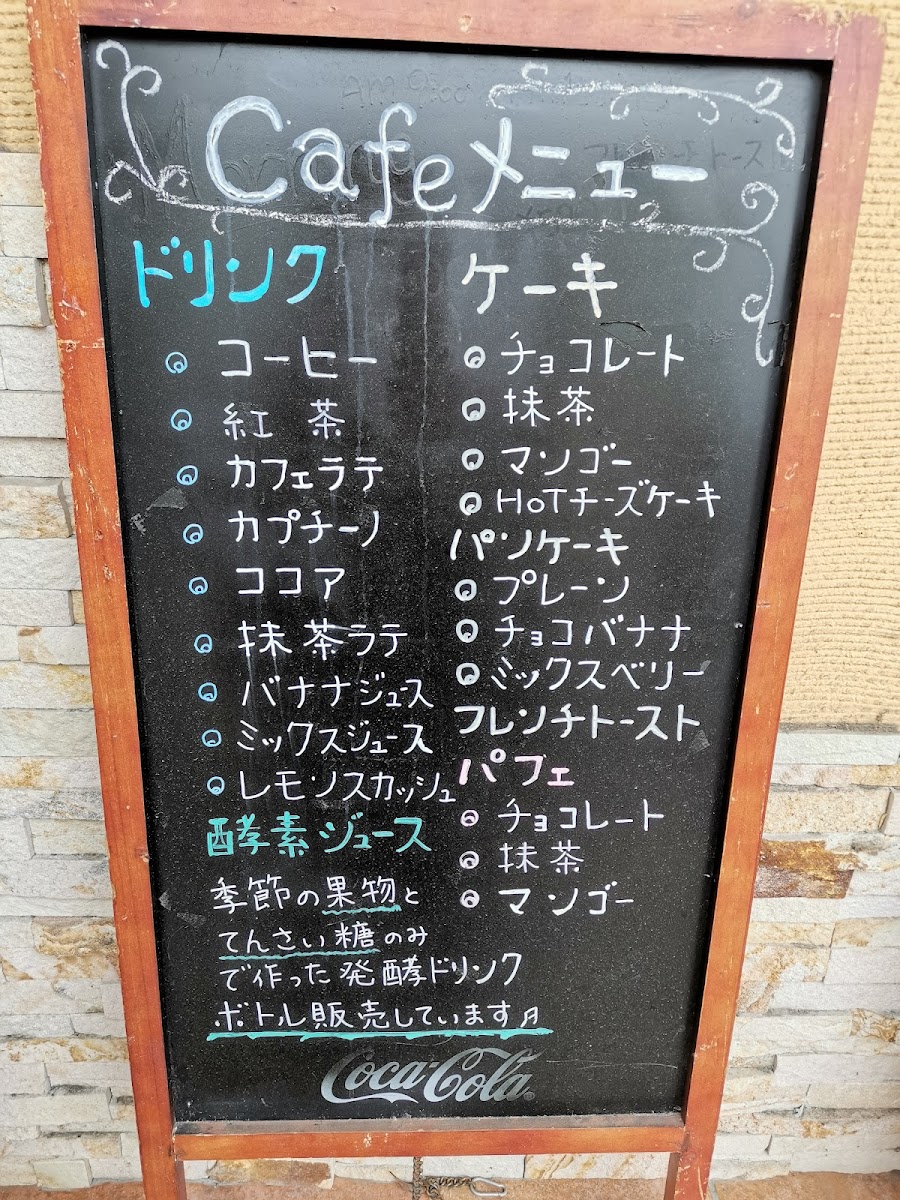 Cafeメニュー
ドリンク
コーヒー
紅茶
カフェラテ
カプチーノ
ココア
抹茶ラテ
バナナジュース
ミックスジュース
レモンスカッシュ
酵素ジュース
季節の果物と
てんさい糖のみ
で作った発酵ドリンク
ボトル販売しています♬
ケーキ
チョコレート
抹茶
マンゴー
HoTチーズケーキ
パンケーキ
プレーン
チョコバナナ
ミックスベリー
フレンチトースト
パフェ
チョコレート
抹茶
マンゴー
Coca-Cola